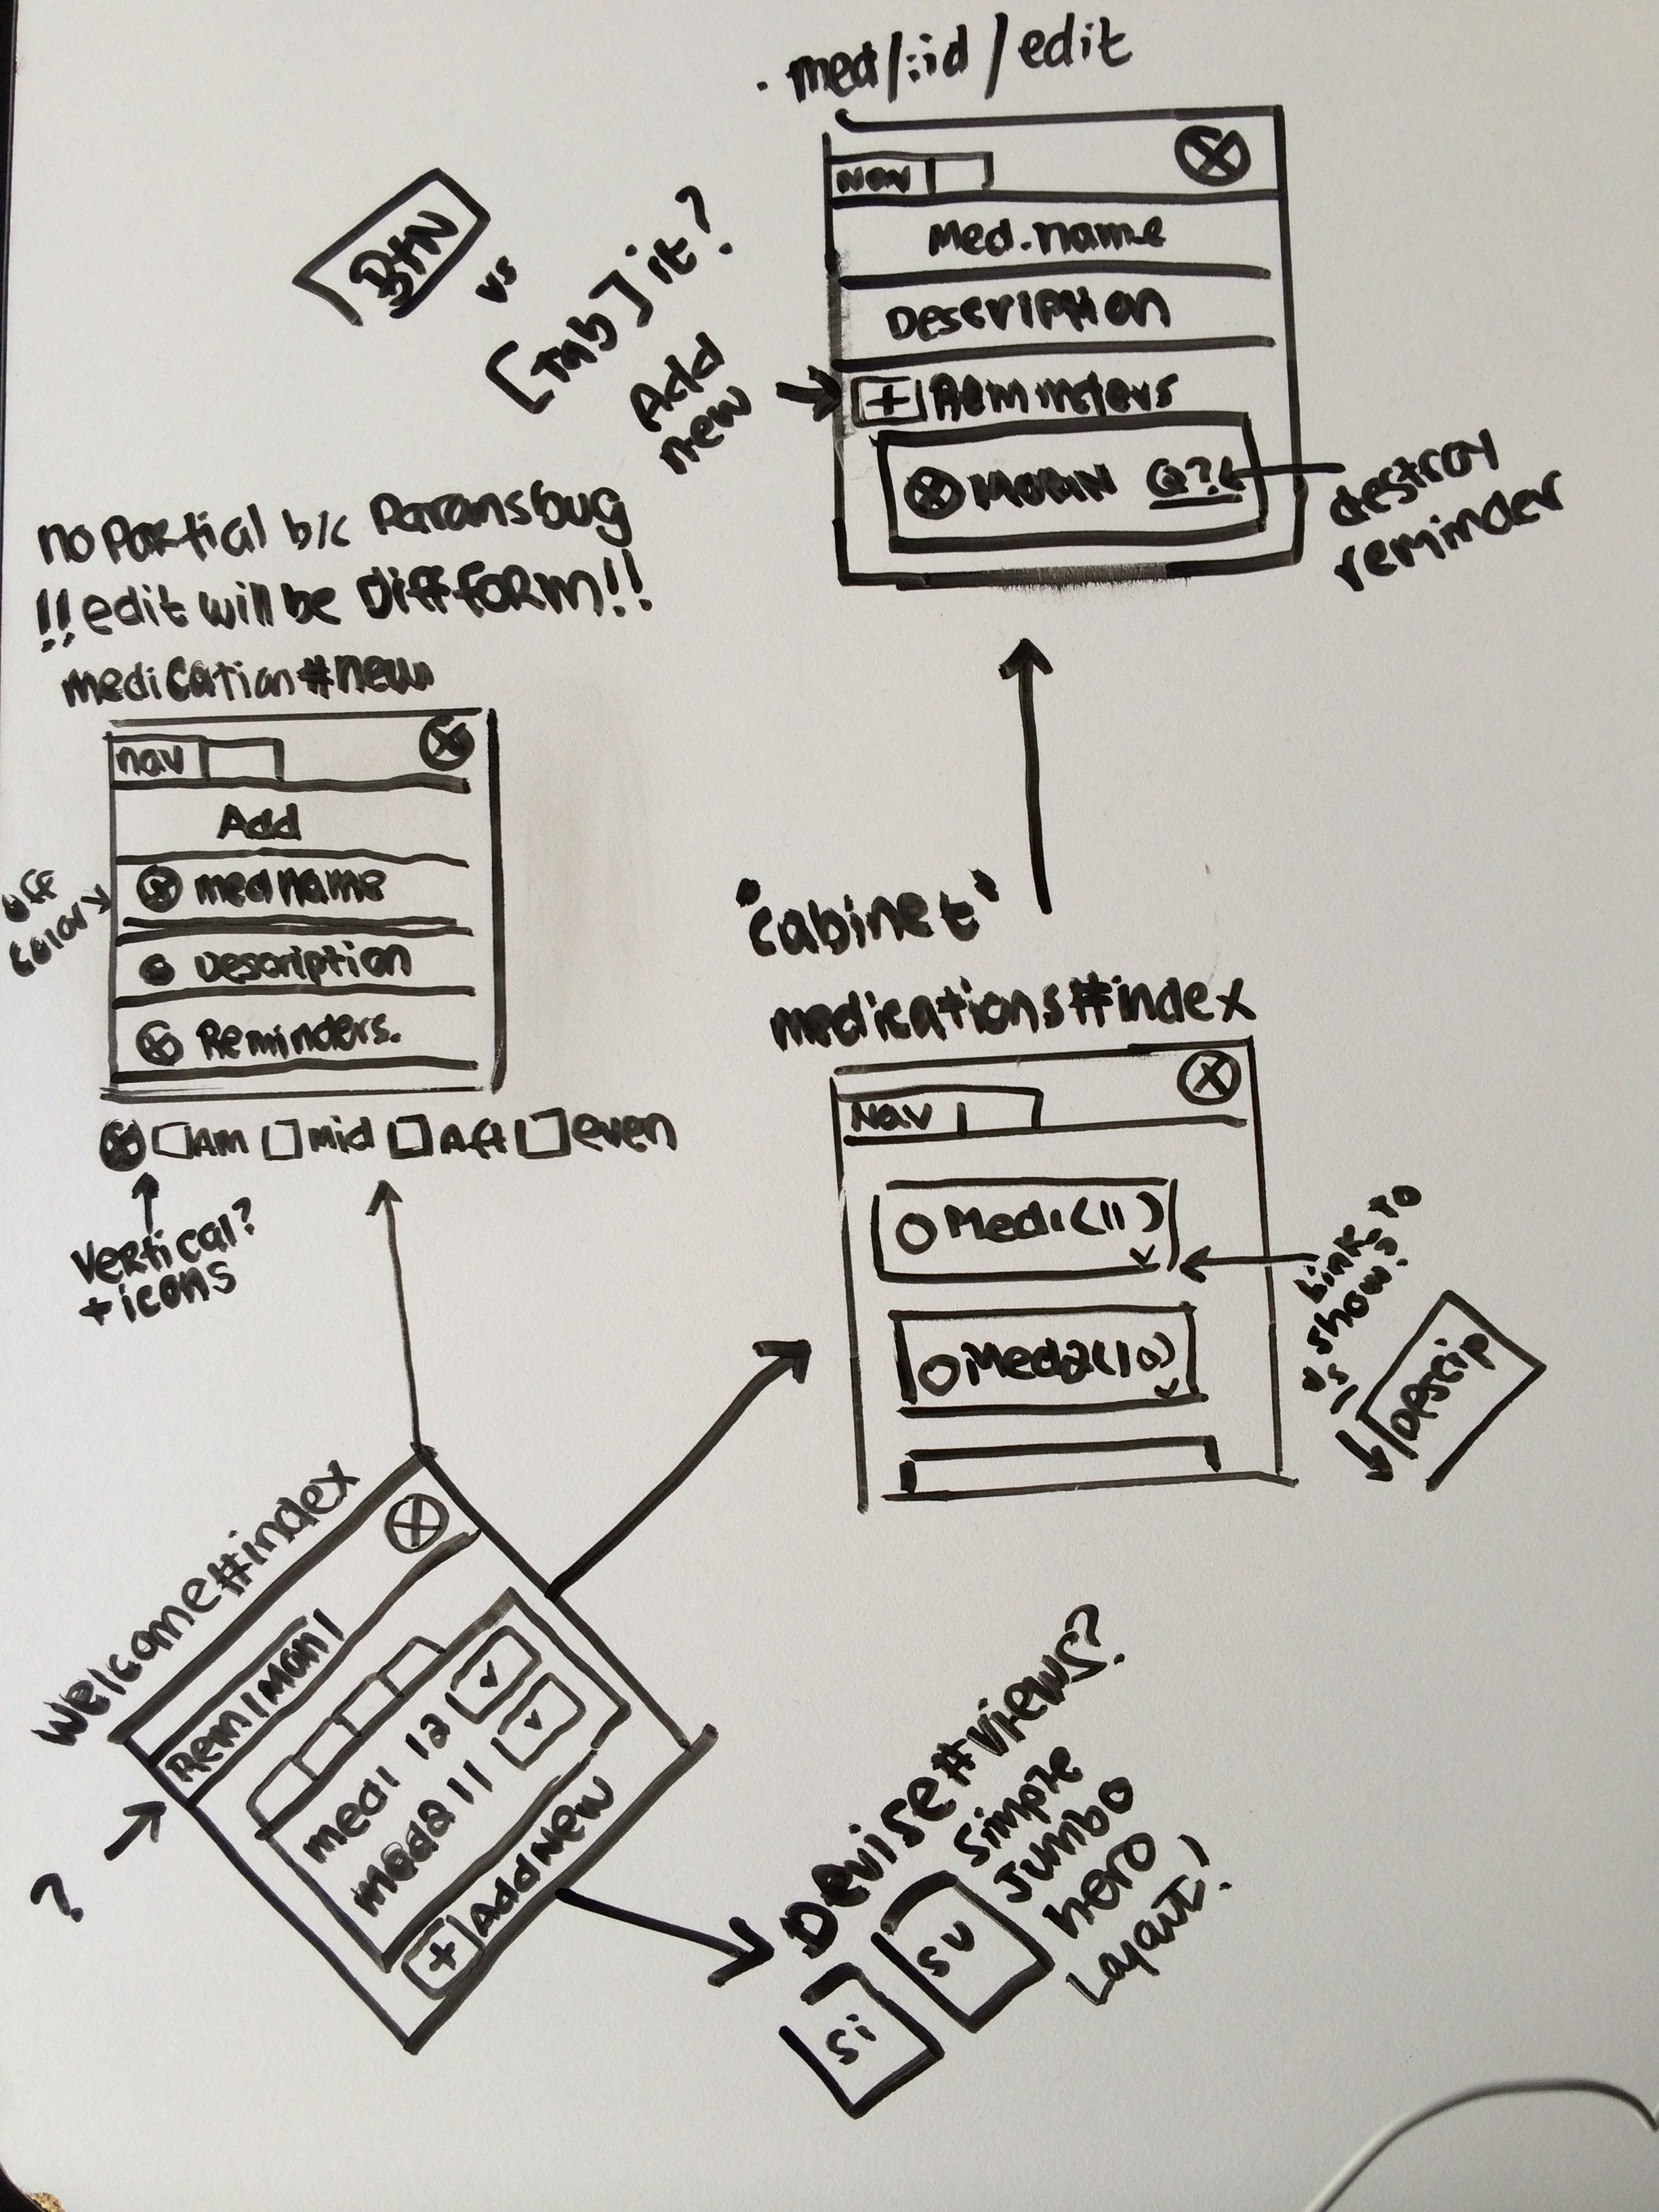 . med/:id/edit
Nav
Med.name
Description
+ Reminders
MORN Q?
destroy
reminder
BtN
vs
[Tab] it?
Add
new
no Partial b/c Paramsbug
!!edit will be Diff form!!
medication#new
nav
Add
med name
Description
Reminders.
off
color
AM mid Aft even
Vertical?
+icons
"cabinet"
medications#index
Nav
Med1(11)
Med2(10)
Links to
show?
vs
Descrip
Welcome#index
RemiMoni
med1 12
med2 11
+ Add New
?
Devise#views?
Si
SU
Simple
Jumbo
hero
Layout?